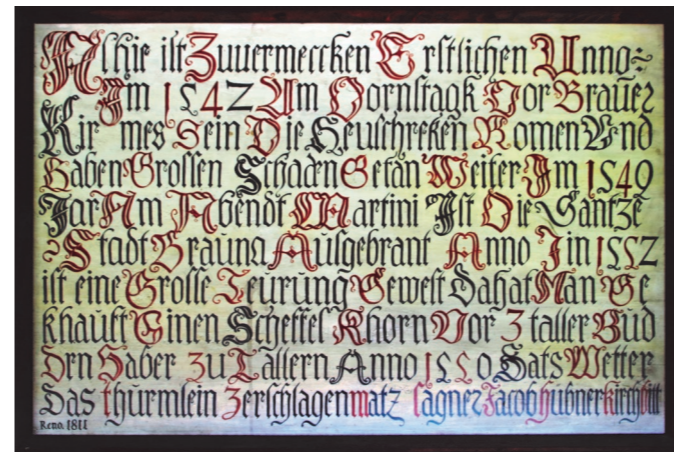 Alhie ist Zuuermercken Erstlichen Anno
Im 1542 Am Dornstagk Vor Brauner
Kirmes Sein Die Heuschreken Komen Vnd
Haben Grossen Schadn Getan Weiter Im 1549
Jar Am Abendt Martini Ist Die Gantze
Stadt Brauna Ausgebrant Anno Jm 1552
ist eine Grosse Teurung Gewest Dahat Man Ge
khauft Einen Scheffel Khorn Vor 3 taller Vnd
Den Haber zu Tallern Anno 1550 Hats Wetter
Das thurmlein Zerschlagen matz sagner Jacob hubner kirchbitt
Reno. 1811